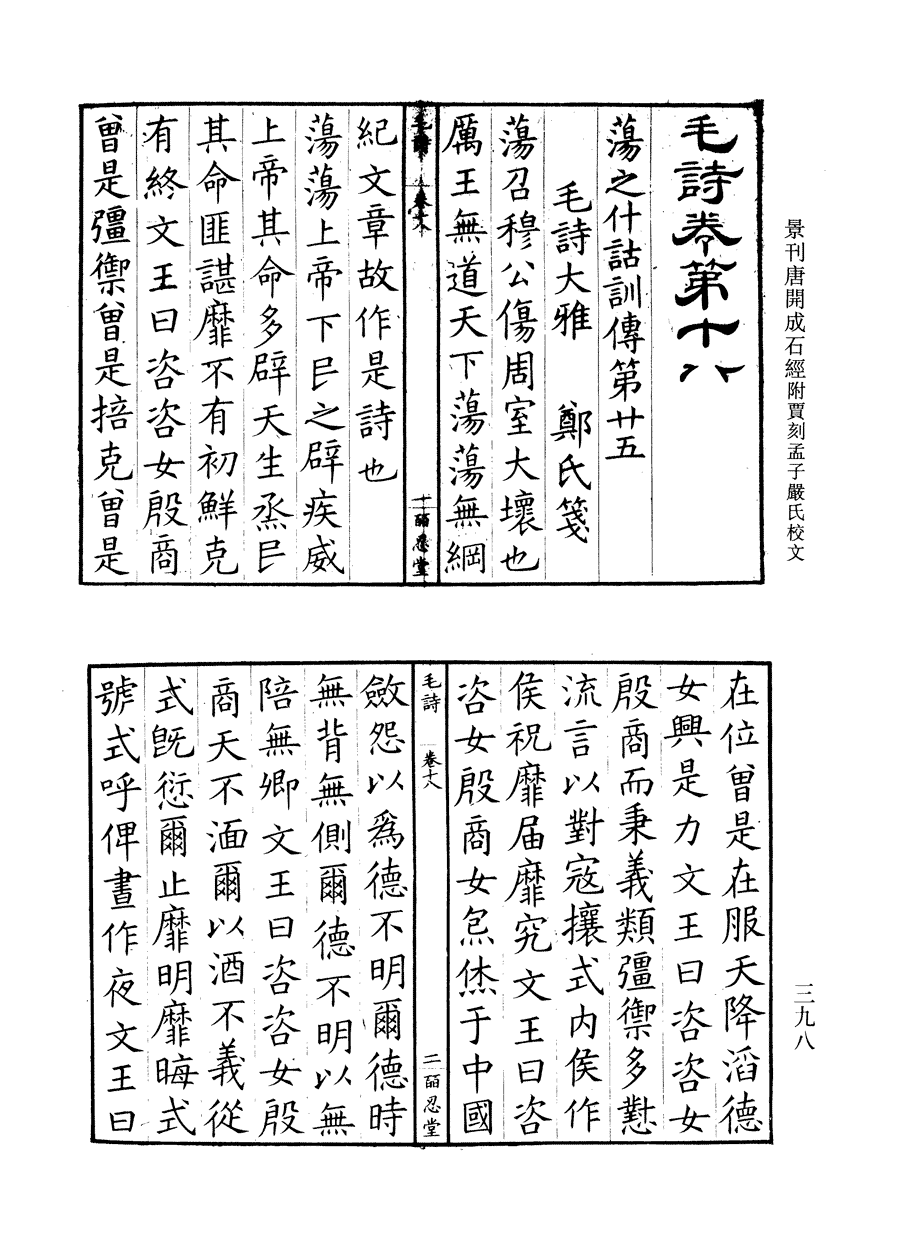 景刊唐開成石經附賈刻孟子嚴氏校文
毛詩卷第十八
蕩之什詁訓傳第廿五
毛詩大雅　鄭氏箋
蕩召穆公傷周室大壞也
厲王無道天下蕩蕩無綱
毛詩　卷十八　一　皕忍堂
紀文章故作是詩也
蕩蕩上帝下民之辟疾威
上帝其命多辟天生烝民
其命匪諶靡不有初鮮克
有終文王曰咨咨女殷商
曾是彊禦曾是掊克曾是
三九八
在位曾是在服天降滔德
女興是力文王曰咨咨女
殷商而秉義類彊禦多懟
流言以對寇攘式内侯作
侯祝靡届靡究文王曰咨
咨女殷商女炰烋于中國
毛詩　卷十八　二　皕忍堂
斂怨以爲德不明爾德時
無背無側爾德不明以無
陪無卿文王曰咨咨女殷
商天不湎爾以酒不義從
式既愆爾止靡明靡晦式
號式呼俾晝作夜文王曰